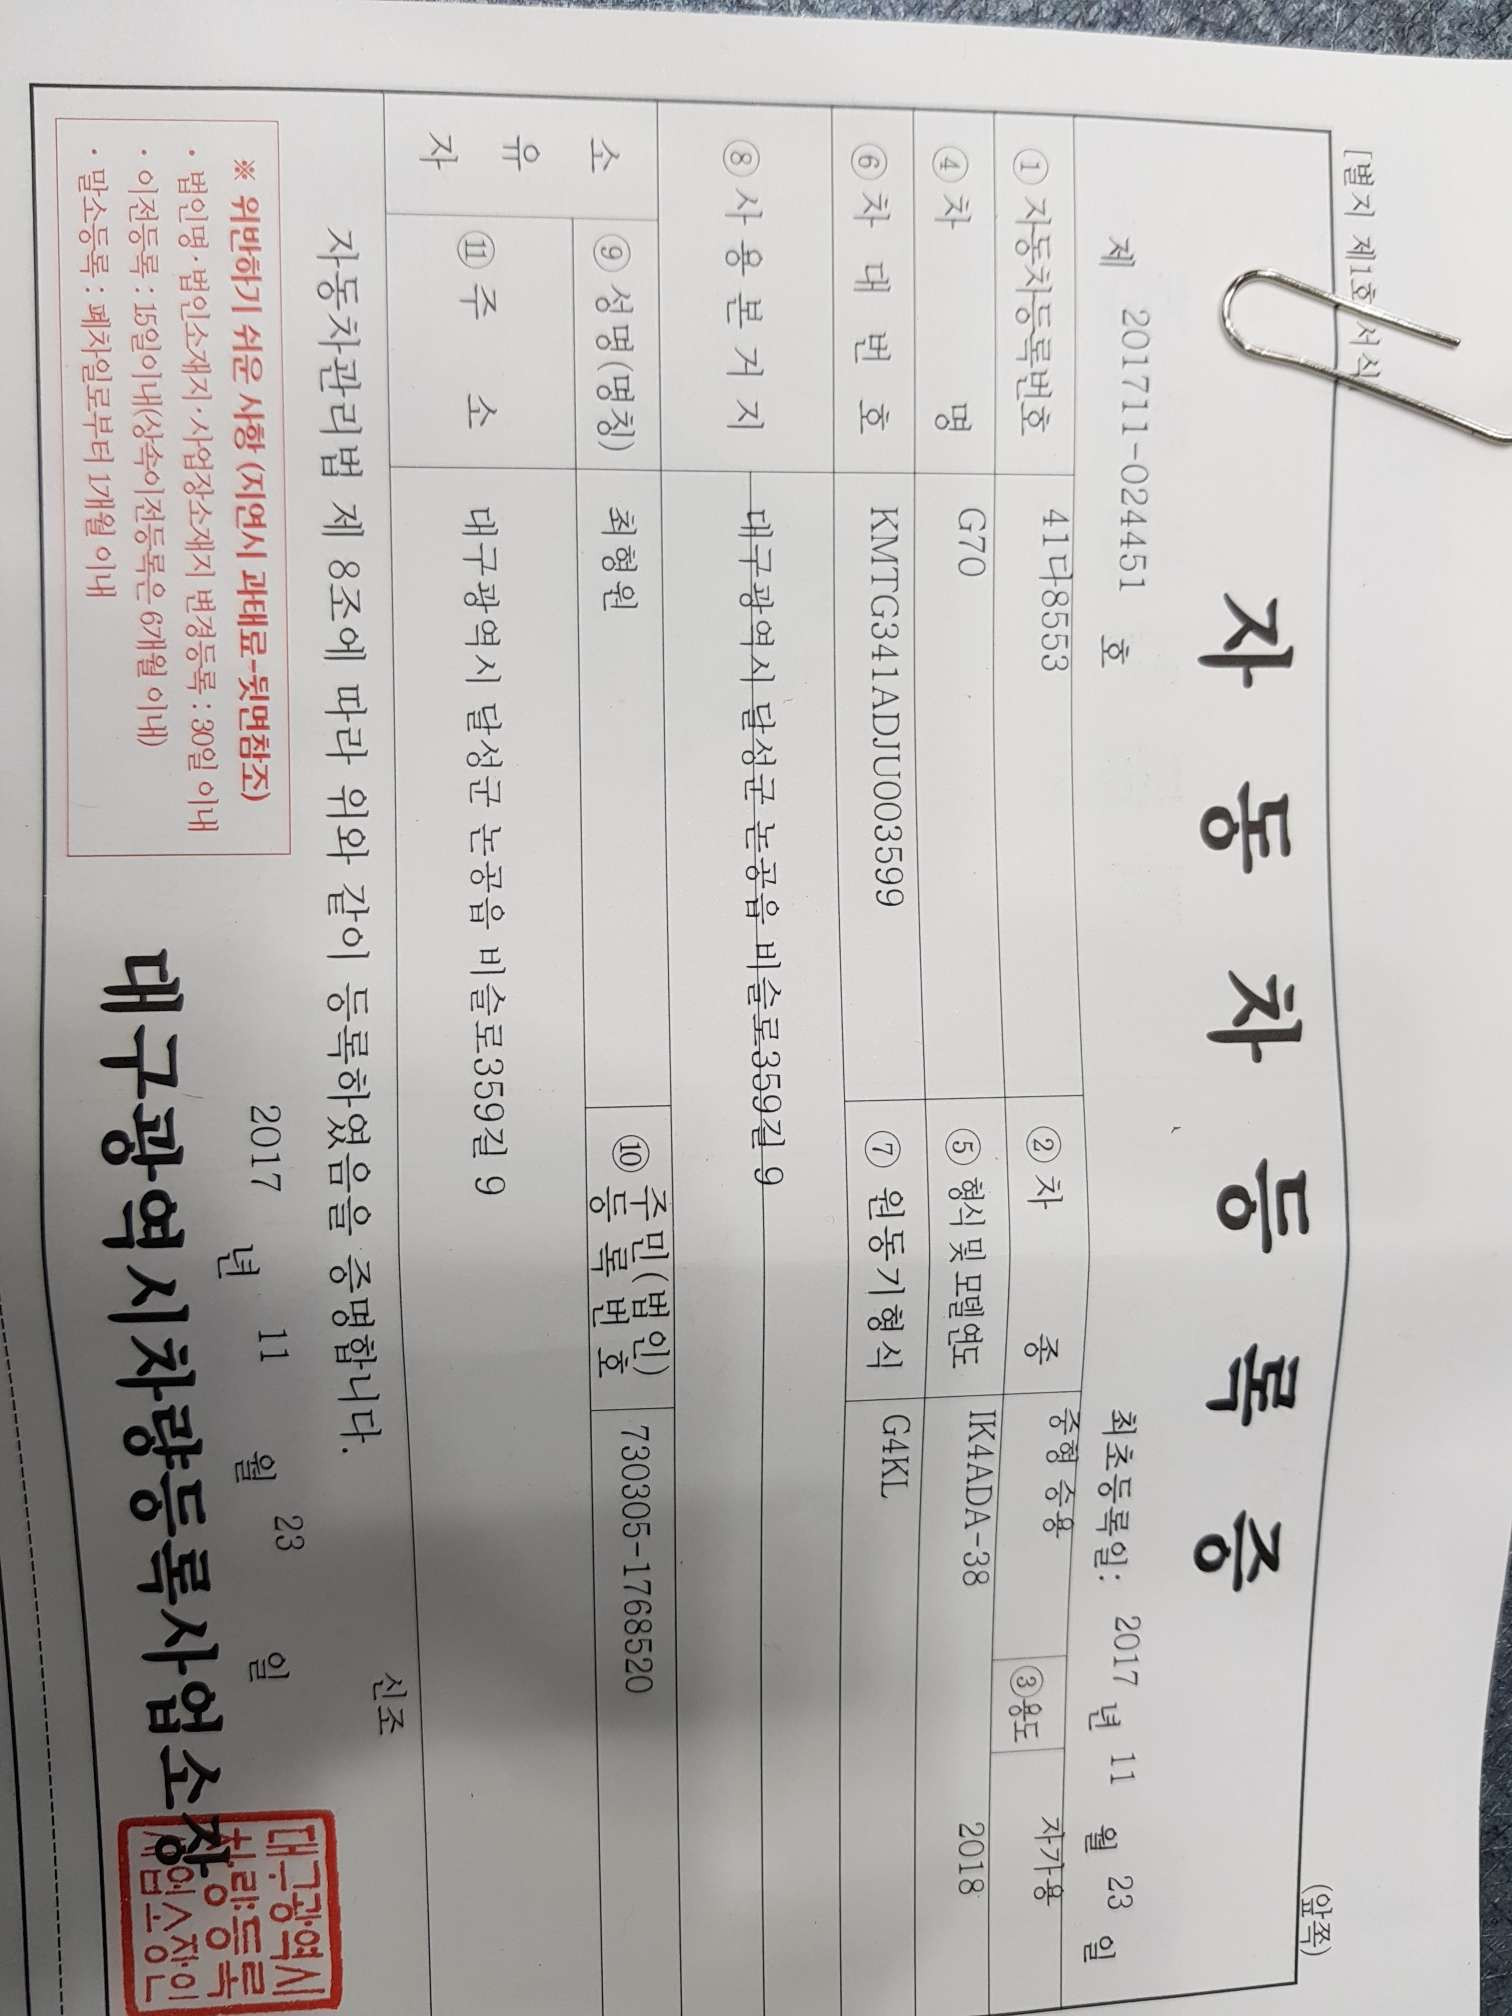 [별지 제1호 서식]
(앞쪽)
자동차등록증
제 201711-024451 호
최초등록일: 2017 년 11 월 23 일
① 자동차등록번호 41다8553 ② 차 종 중형 승용 ③용도 자가용
④ 차 명 G70 ⑤ 형식 및 모델연도 IK4ADA-38 2018
⑥ 차 대 번 호 KMTG341ADJU003599 ⑦ 원동기형식 G4KL
⑧ 사 용 본 거 지 대구광역시 달성군 논공읍 비슬로359길 9
소유자 ⑨ 성명(명칭) 최형원 ⑩ 주민(법인)등록번호 730305-1768520
⑪ 주 소 대구광역시 달성군 논공읍 비슬로359길 9
신조
자동차관리법 제 8조에 따라 위와 같이 등록하였음을 증명합니다.
※ 위반하기 쉬운 사항 (지연시 과태료-뒷면참조)
· 법인명·법인소재지·사업장소재지 변경등록 : 30일 이내
· 이전등록 : 15일이내(상속이전등록은 6개월 이내)
· 말소등록 : 폐차일로부터 1개월 이내
2017 년 11 월 23 일
대구광역시차량등록사업소장
대구광역시
차량등록
사업소장인